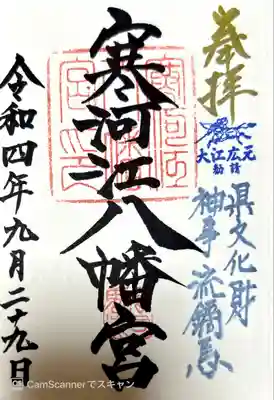 奉拝
大江広元
勧請
県文化財
神事流鏑馬
寒河江八幡宮
令和四年九月二十九日
CamScannerでスキャン